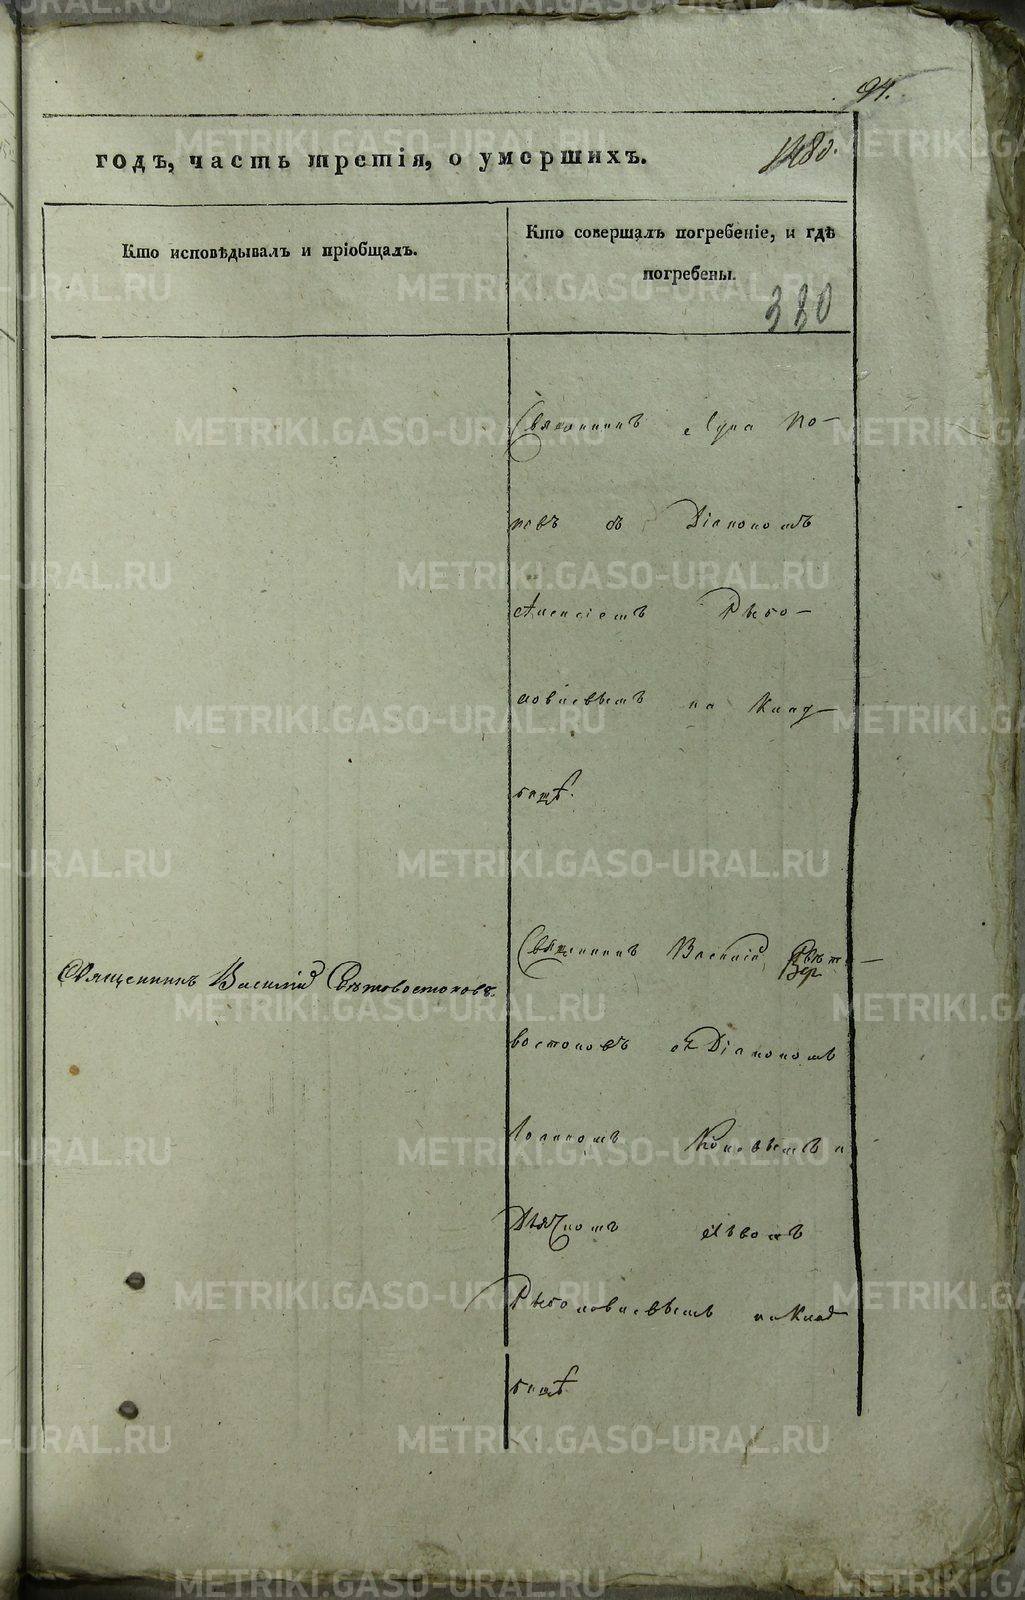 94.
годъ, часть третія, о умершихъ.
Кто исповѣдывалъ и пріобщалъ.
Кто совершалъ погребеніе, и гдѣ
погребены.
380
Священникъ Лука По-
повъ съ Діакономъ
Алексіемъ Рысо-
на Клад-
бищѣ.
Священникъ Василій Свѣтовостоковъ.
Священникъ Василій Свѣто-
востоковъ съ Діакономъ
Поповымъ и
Дьячкомъ Львомъ
на Клад
бищѣ
METRIKI.GASO-URAL.RU